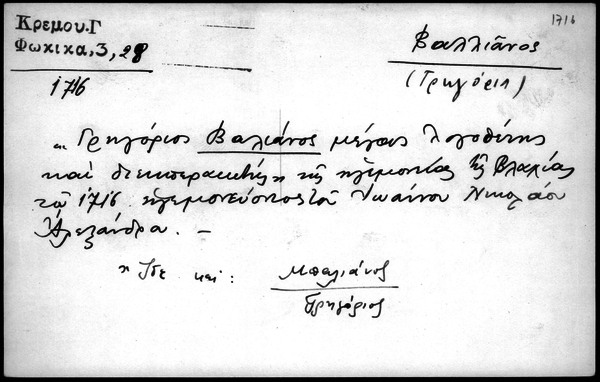 Κρεμου.Γ
Φωκικα,3,28
1716
1716
Βαλλιᾶνος
(Γρηγόρις)
„ Γρηγόριος Βαλιάνος μέγας λογοθέτης
καὶ διεκπεραιωτής τῆς ἡγεμονίας τῆς Βλαχίας
τῷ 1716 ἡγεμονεύοντος τοῦ Ἰωάννου Νικολάου
Ἀλεξάνδρα. —
Ἴδε καὶ: Μπαλιάνος
Γρηγόριος